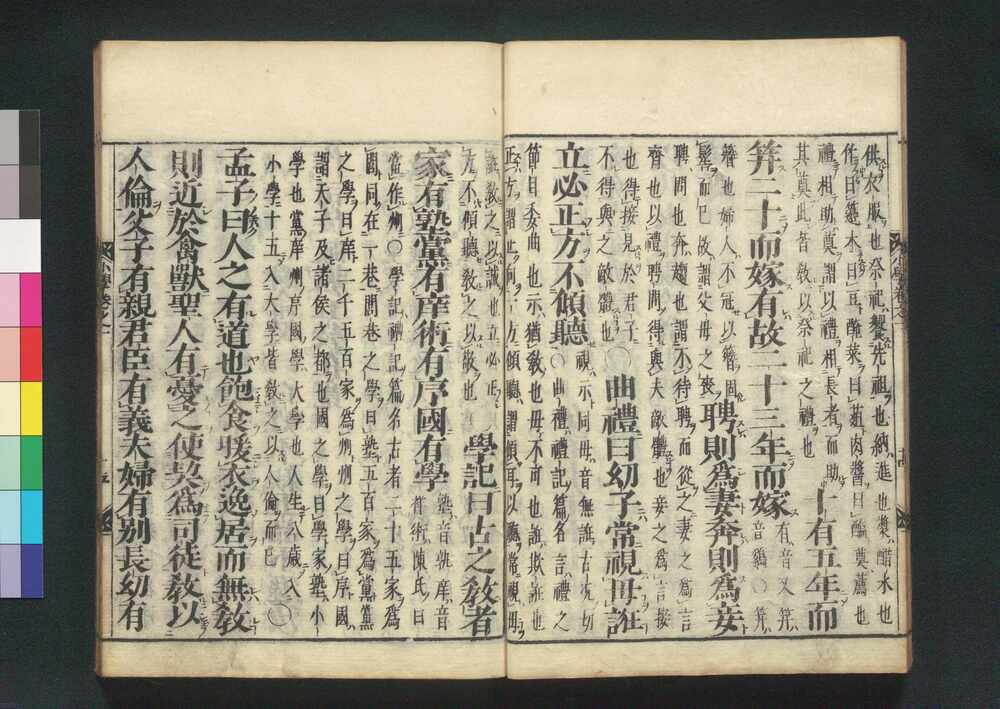 供衣服也祭祀饗先祖也納進也漿醋水也
作曰籩木曰豆醃菜曰葅肉醬曰醢奠薦也
禮相助奠謂以禮相長者而助
其奠此皆敎以祭祀之禮也
十有五年而
笄二十而嫁有故二十三年而嫁
有音又笄
音雞○笄
簪也婦人不冠以簪固
髻而已故謂父母之喪
聘則爲妻奔則爲妾
聘問也奔趨也謂不待聘而從之妻之爲言
齊也以禮聘問得與夫敵體也妾之爲言接
也得接見於君子
不得與之敵體也
○曲禮曰幼子常視毋誑
立必正方不傾聽
視示同毋音無誑古况切
○曲禮禮記篇名言禮之
節目委曲也示猶敎也毋不可也誑欺誑也
正方謂正向一方傾聽謂傾耳以聽常視毋
誑敎之以誠也立必正
方不傾聽敎之以敬也
學記曰古之敎者
家有塾黨有庠術有序國有學
塾音孰庠音
術陳氏曰
當作州○學記禮記篇名古者二十五家爲
閭同在一巷閭巷之學曰塾五百家爲黨黨
之學曰庠二千五百家爲州州之學曰序國
謂天子及諸侯之都也國之學曰學家塾小
學也黨庠州序國學大學也人生八歲入
小學十五入大學皆敎之以人倫而已
○
孟子曰人之有道也飽食煖衣逸居而無敎
則近於禽獸聖人有憂之使契爲司徒敎以
人倫父子有親君臣有義夫婦有別長幼有